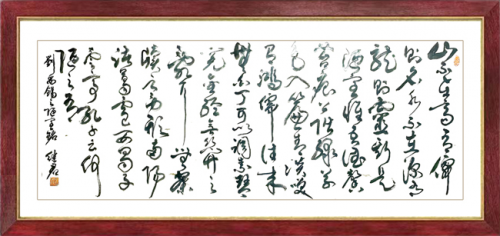 山不在高有僊
則名水不在深有
龍則靈斯是
陋室惟吾德馨
苔痕上階綠草
色入簾青談笑
有鴻儒往來
無白丁可以調素琴
閱金經無絲竹之
亂耳無案
牘之勞形南陽
諸葛廬西蜀子
雲亭孔子云何
陋之有
劉禹錫陋室銘